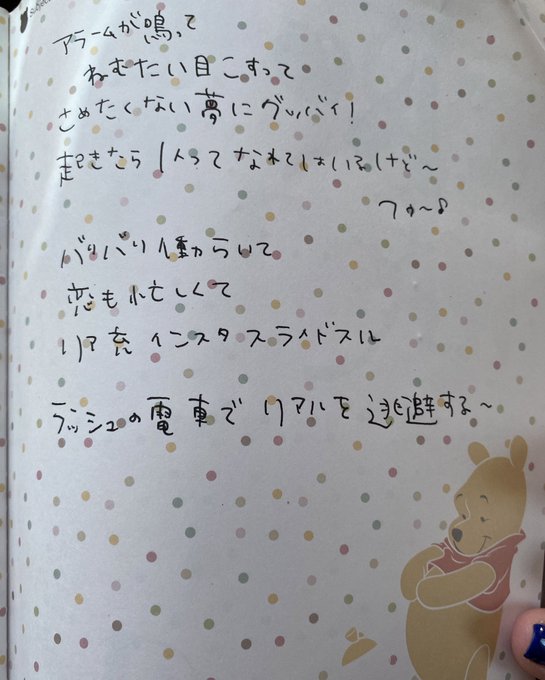 アラームが鳴って
ねむたい目こすって
さめたくない夢にグッバイ!
起きたら1人ってなれてはいるけど〜
フゥ〜♪
バリバリ働らいて
恋も忙しくて
リア充インスタスライドスル
ラッシュの電車でリアルを逃避する〜